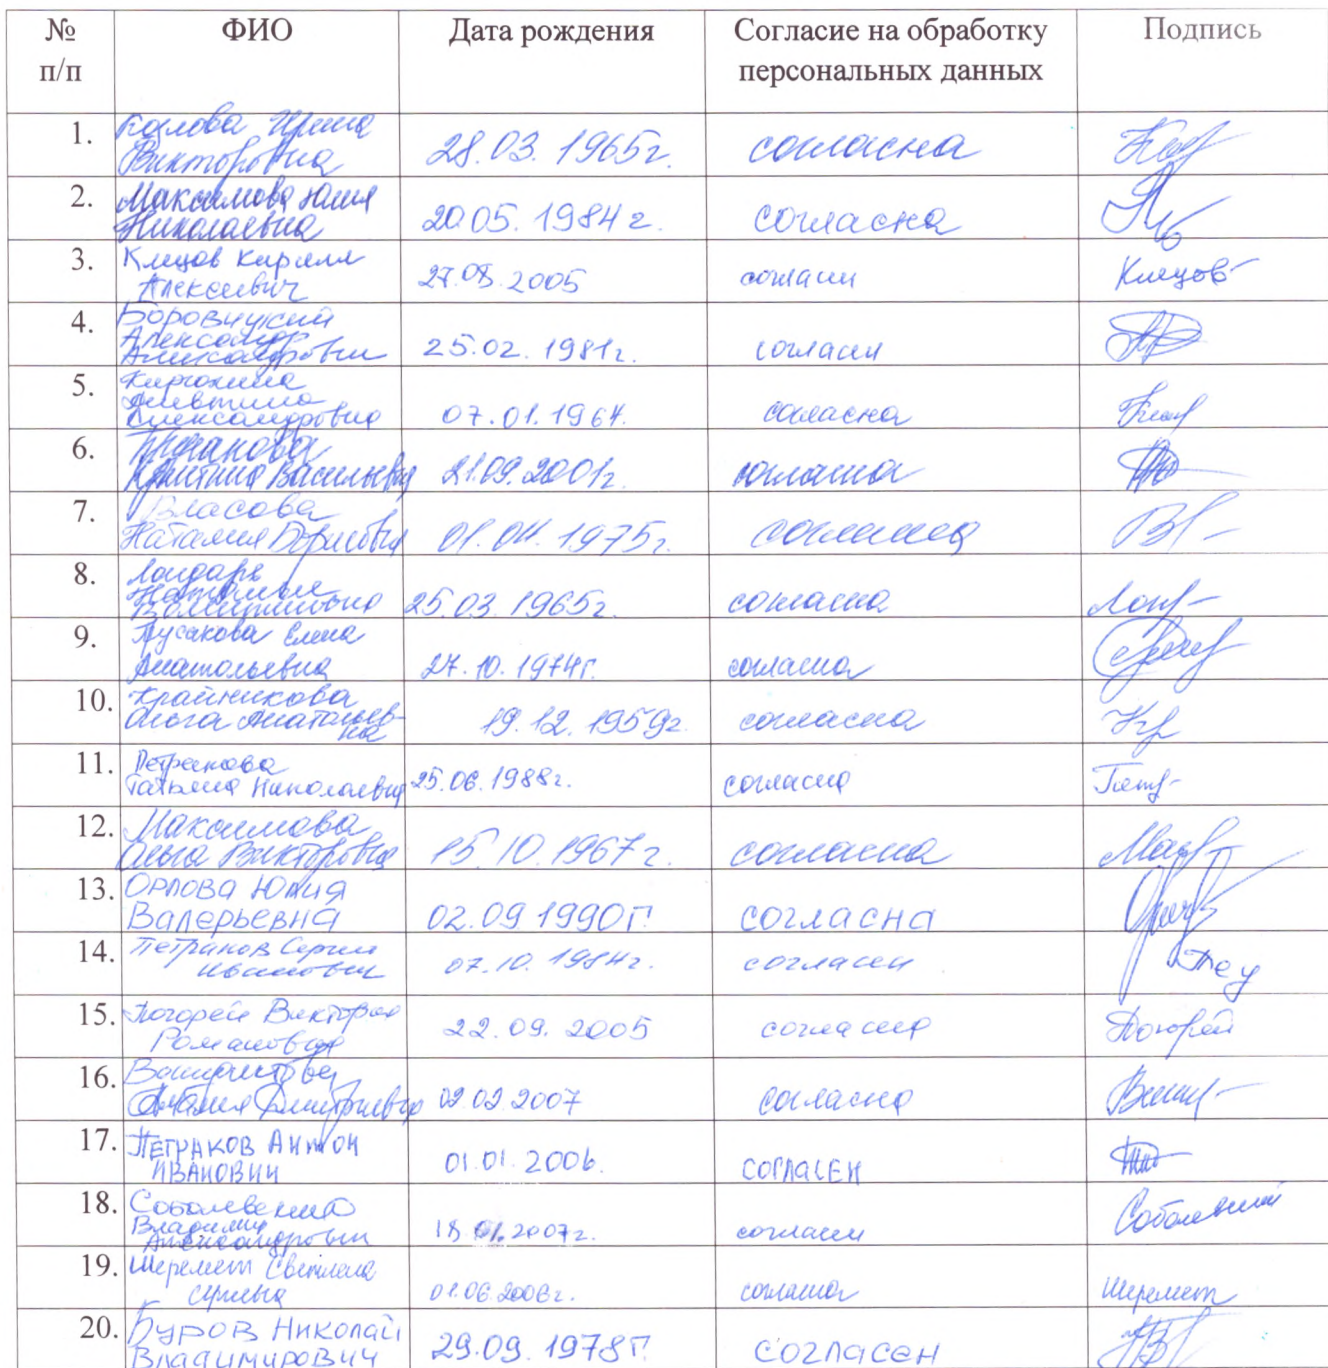 № п/п ФИО Дата рождения Согласие на обработку персональных данных Подпись
1. Козлова Ирина Викторовна 28.03.1965г. согласна
2. Максимова Юлия Николаевна 20.05.1984г. согласна
3. Клецов Кирилл Алексеевич 27.08.2005 согласен Клецов
4. Боровицкий Александр Александрович 25.02.1981г. согласен
5. Александровна 07.01.1964. согласна
6. Васильевна 21.09.2001г. согласна
7. Власова Наталия Борисовна 01.04.1975г. согласна
8. Валентиновна 25.03.1965г. согласна
9. Пусакова Елена Анатольевна 27.10.1974г. согласна
10. Крайникова Ольга Анатольевна 19.12.1959г. согласна
11. Петракова Татьяна Николаевна 25.06.1988г. согласна
12. Максимова Ольга Викторовна 15.10.1967г. согласна
13. Орлова Юлия Валерьевна 02.09.1990г. согласна
14. Петраков Сергей Иванович 07.10.1984г. согласен
15. Погорей Виктория Романовна 22.09.2005 согласна Погорей
16. Наталия Дмитриевна 02.2007 согласна
17. Петраков Антон Иванович 01.01.2006. согласен
18. Соболевский Владимир Александрович 18.01.2007г. согласен Соболевский
19. Шеремет Светлана 01.06.2006г. согласна Шеремет
20. Буров Николай Владимирович 29.09.1978г. согласен